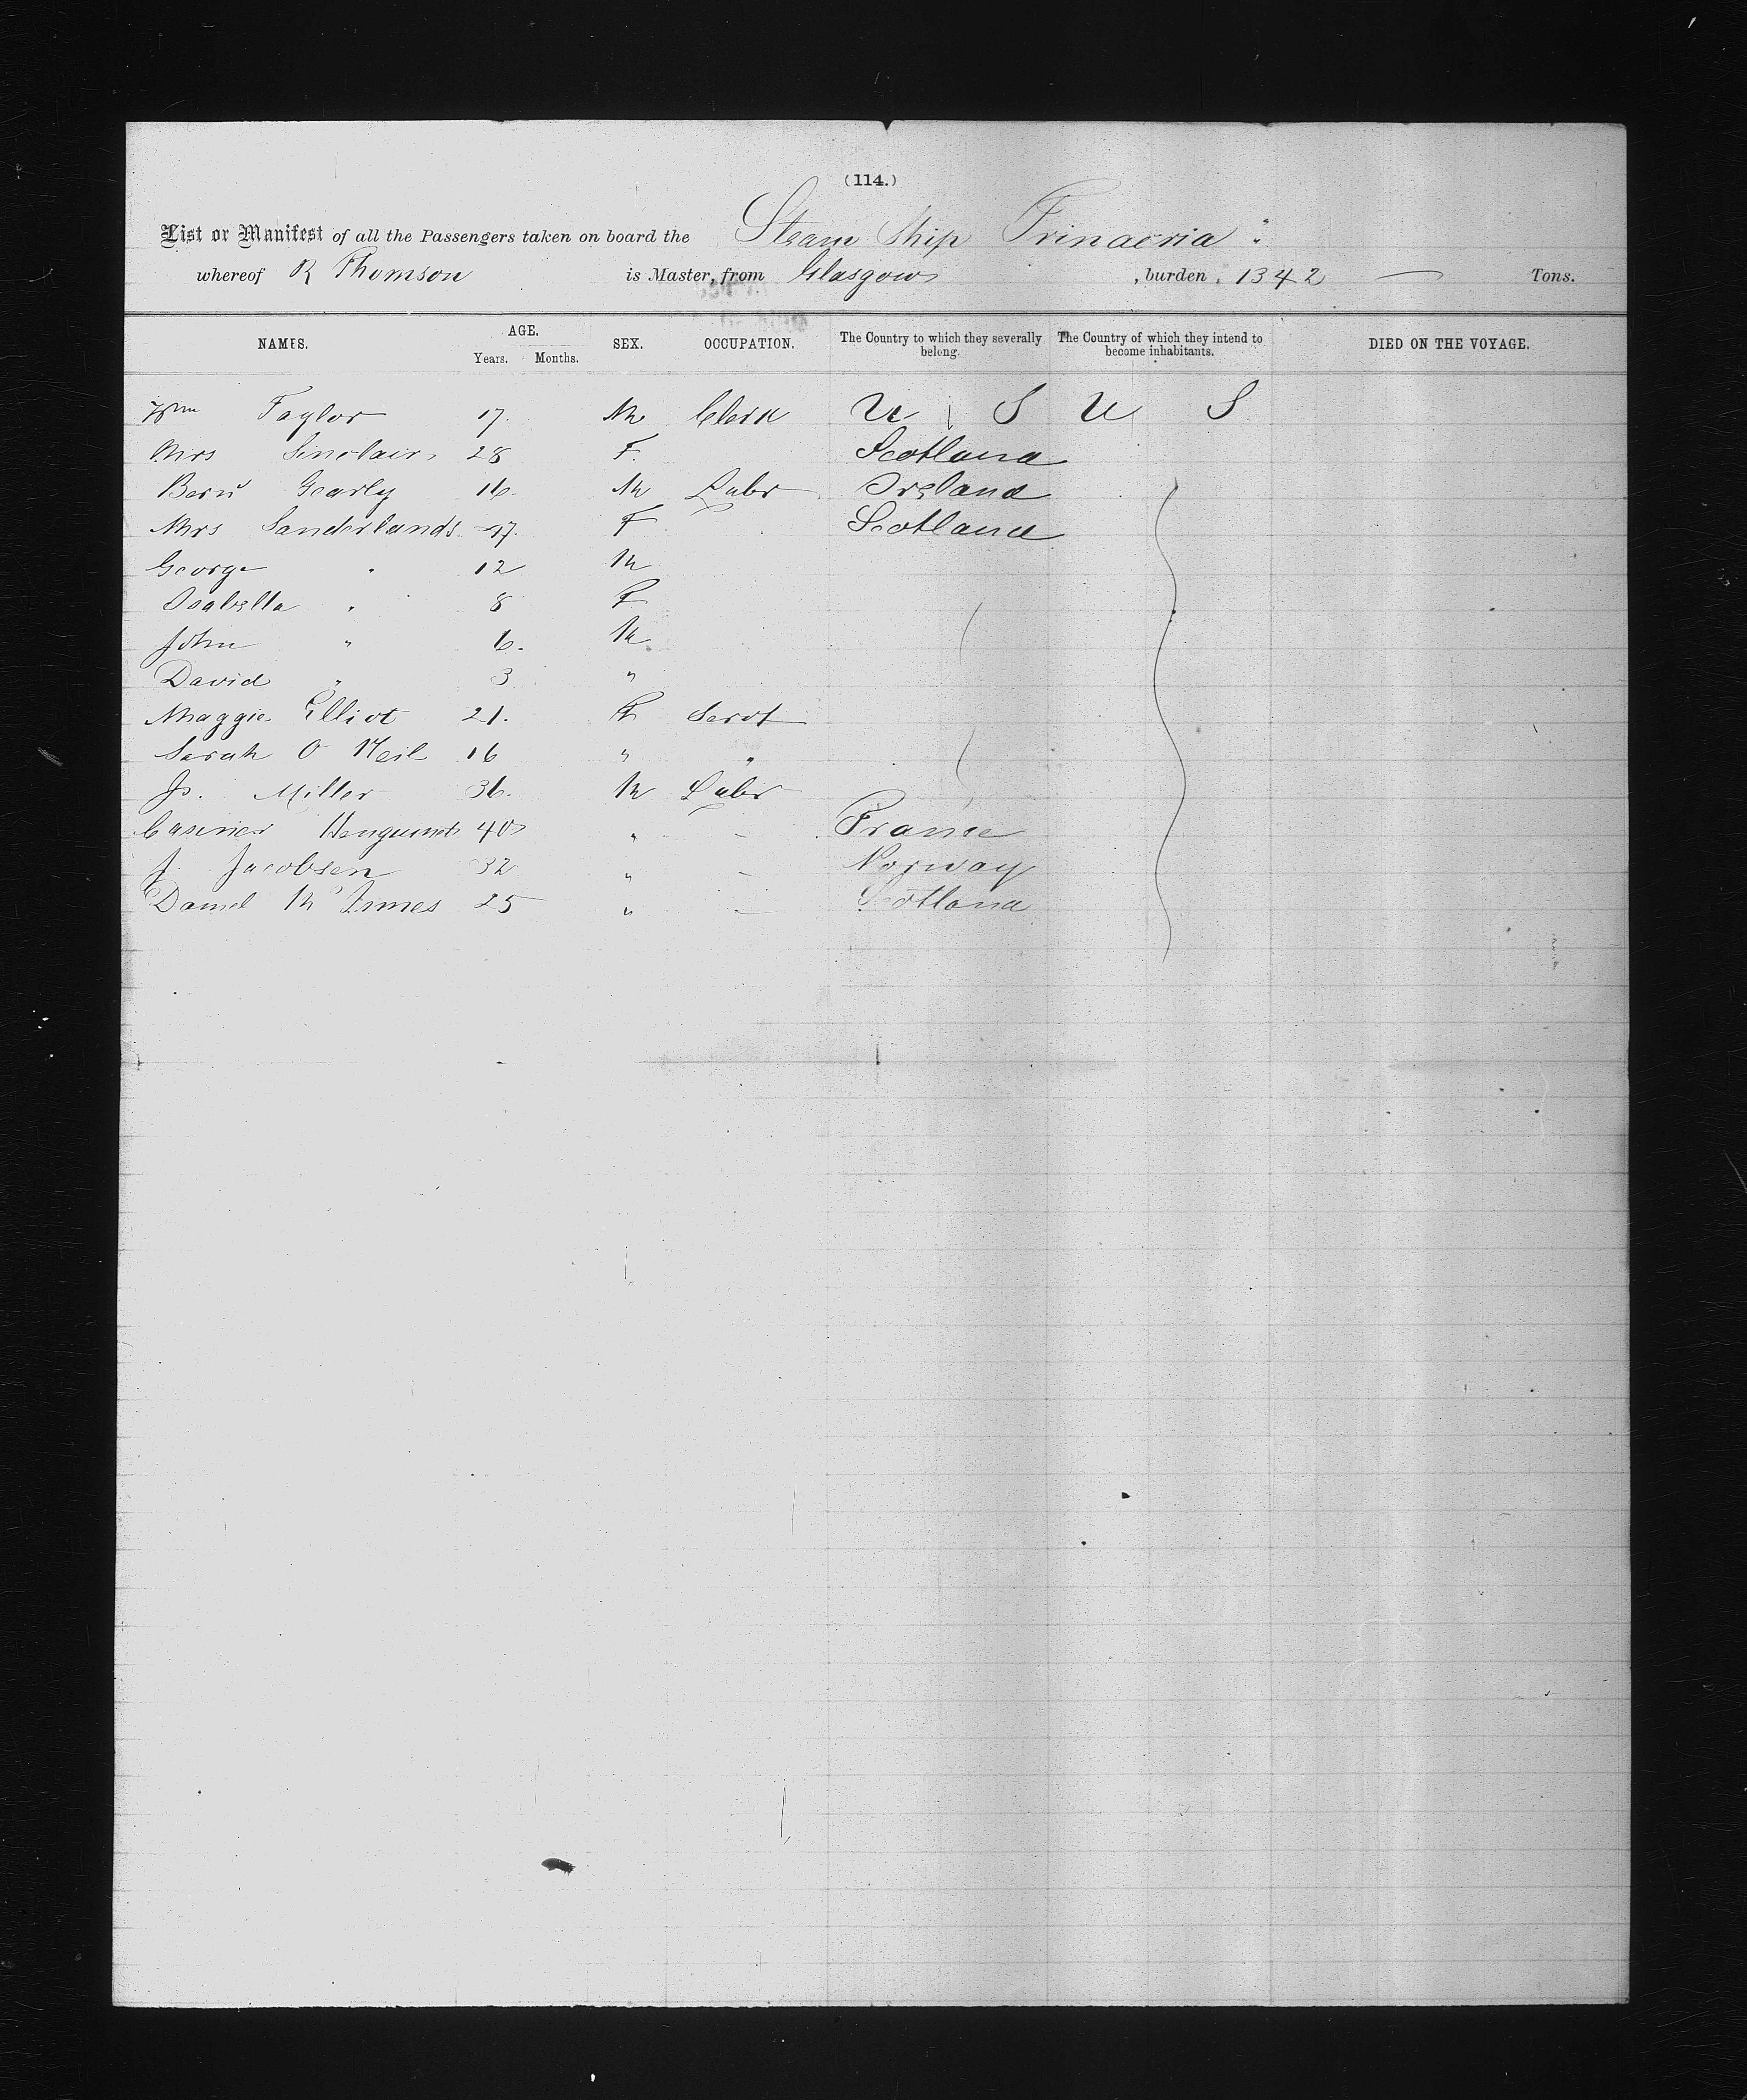 (114.)
List or Manifest of all the Passengers taken on board the Steam Ship Trinacria
whereof R Thomson is Master, from Glasgow , burden 1342 — Tons.
NAMES. AGE. Years. Months. SEX. OCCUPATION. The Country to which they severally belong. The Country of which they intend to become inhabitants. DIED ON THE VOYAGE.
Wm Taylor 17. M Clerk U S U S
Mrs Sinclair 28 F. Scotland
Gearly 16. M Labr Ireland
Mrs Sanderlands F Scotland
George " 12 M
Isabella " 8 F
John " 6. M
David " 3 "
Maggie Elliot 21. F Servt
Sarah O Neil 16 " "
Js. Miller 36. M Labr
40 " – France
J. Jacobsen 32 " – Norway
Daniel Mc Innes 25 " – Scotland